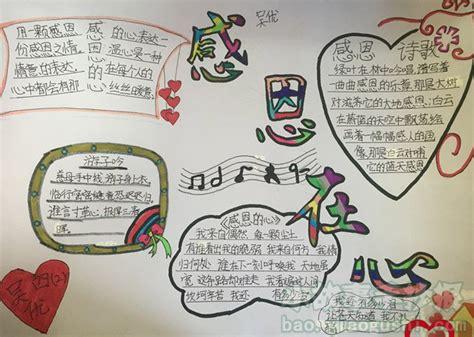 吴优
用一颗感恩的心表达一
份感恩之情 温心是一种
情意的表达 在每个人的
心中都会有那 丝丝的暖意
感
恩
在
心
感恩 诗歌
绿叶在林中吟唱,谱写着
一曲曲感恩的乐章,那是大树
对滋养它的大地感恩;白云
在蔚蓝的天空中飘荡绘
画着一幅幅感人的国
像那是白云对哺
它的蓝天感恩
游子吟
慈母手中线 游子身上衣
临行密密缝 意恐迟迟归
谁言寸草心 报得三春
晖
《感恩的心》
我来自偶然 每一颗尘土
有谁看出我的脆弱 我来自何方 我情
归何处 谁在下一刻呼唤我 天地虽
宽 这条路却难走 我看遍这人间
坎坷辛苦 我还 有多少
我还 有多少泪
让苍天知道 我不认
吴优
baoshougushi